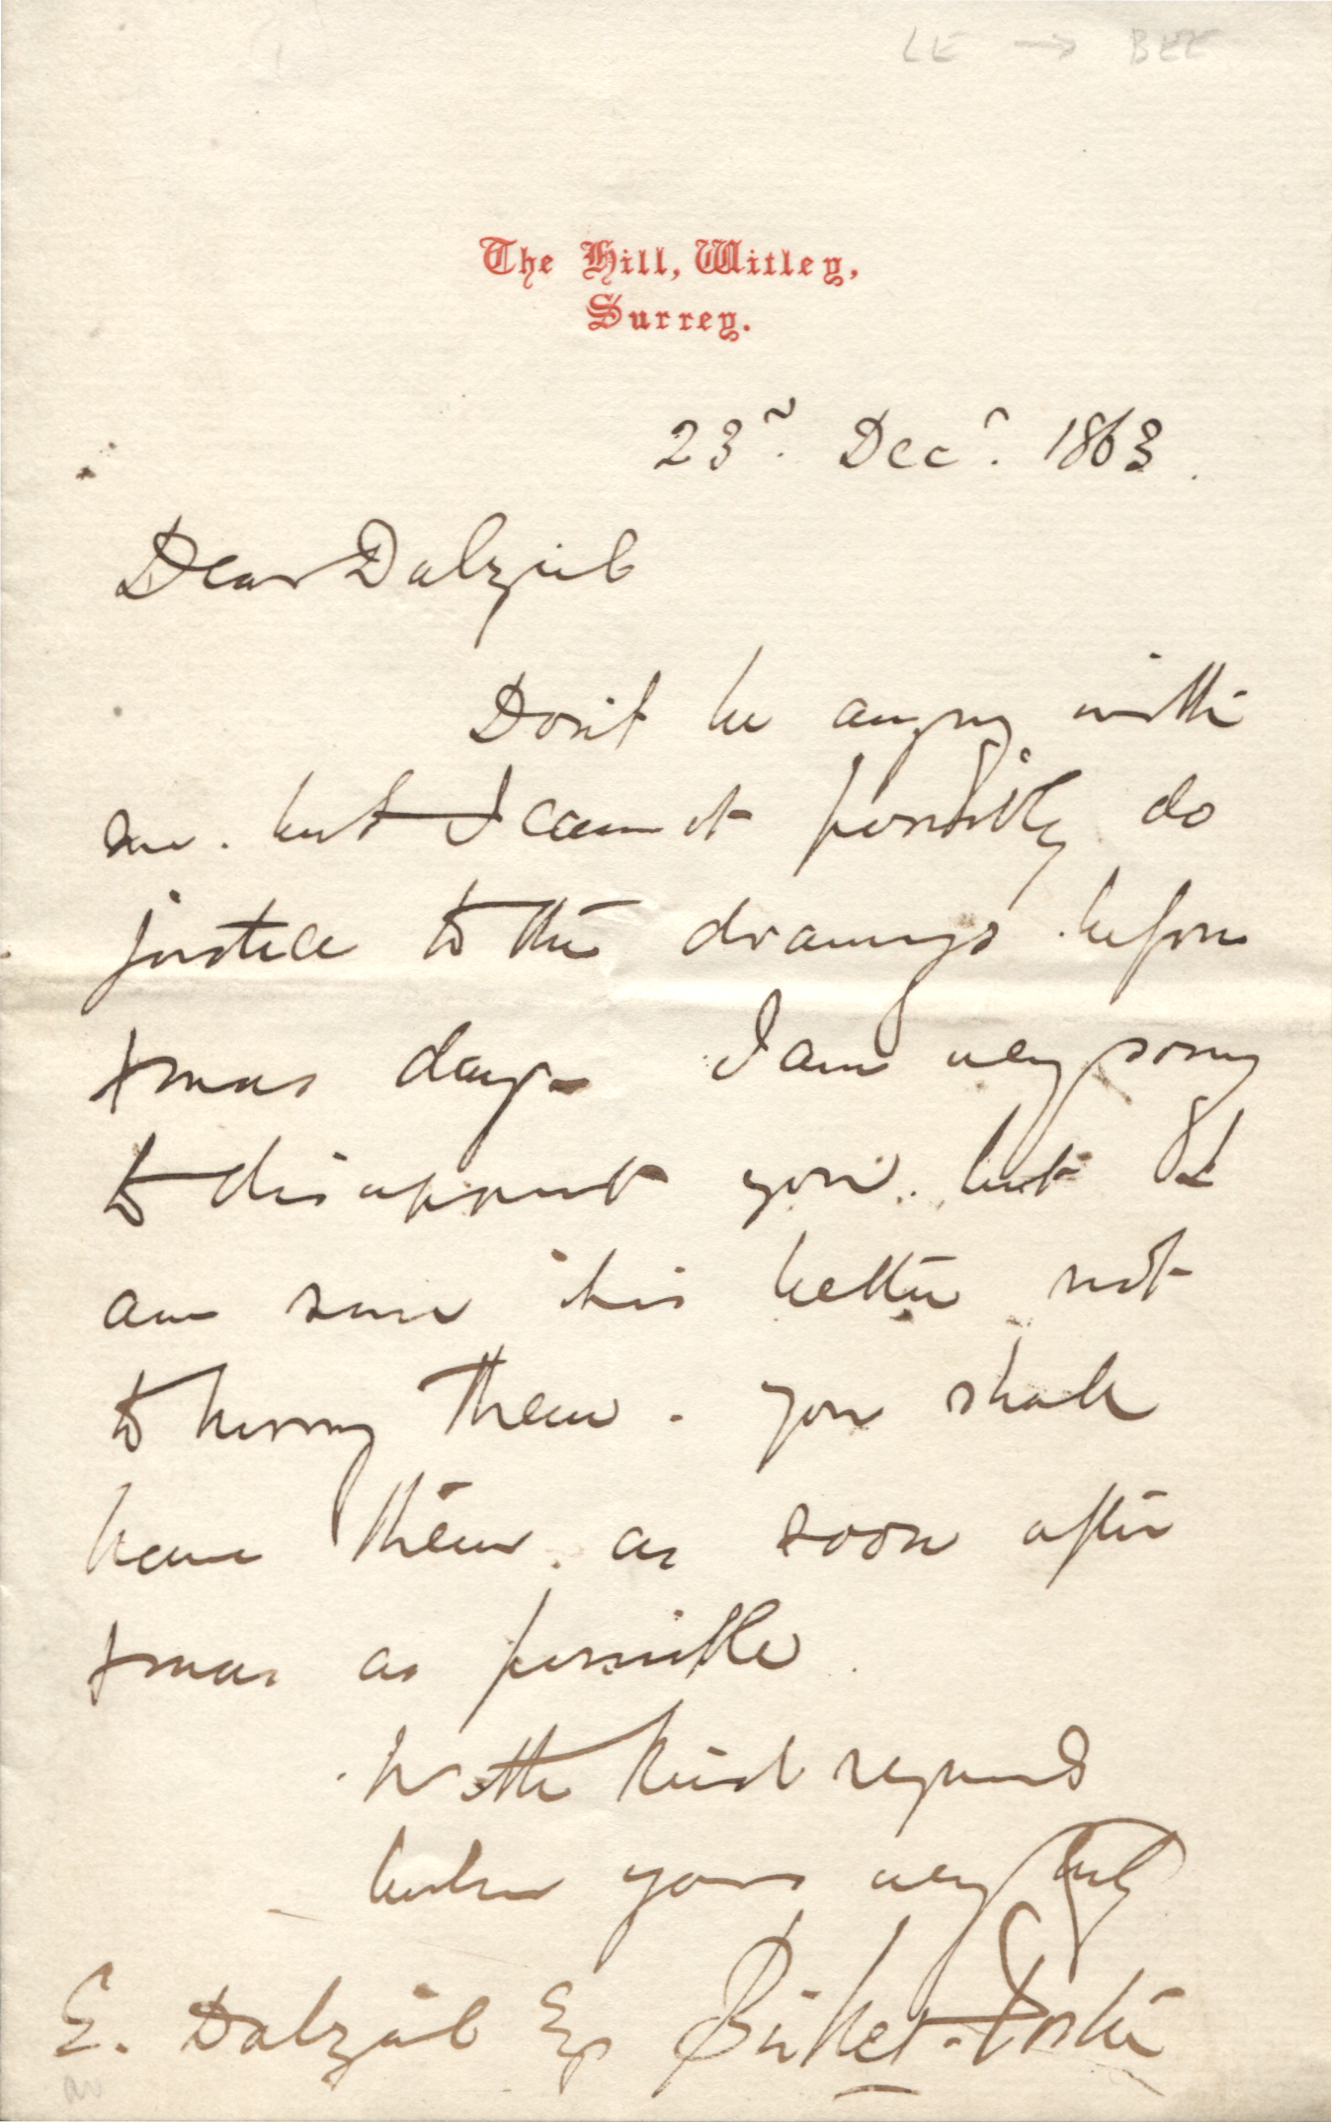 LE → BEE
The Hill, Witley,
Surrey.
23rd. Decr. 1863.
Dear Dalziel
Don't be angry with
me. but I cannot possibly do
justice to the drawings before
Xmas day - I am very sorry
to disappoint you. but I
am sure 'tis better not
to hurry them. you shall
have them as soon after
Xmas as possible.
With kind regards
believe yours very truly
E. Dalziel Esq Birket Foster